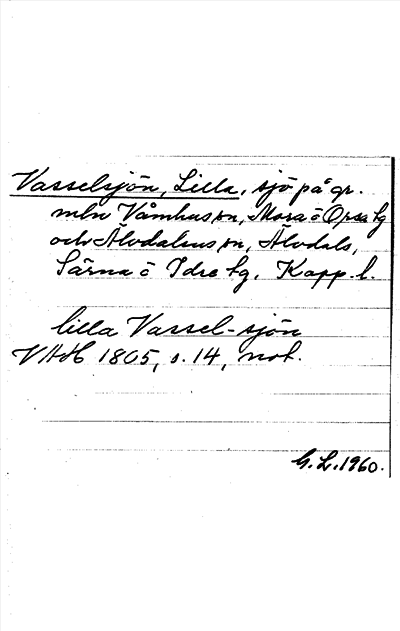 Vasselsjön, Lilla, sjö på gr.
mln Våmhus sn, Mora o Orsa tg
och Älvdalens sn, Älvdals,
Särna o Idre tg, Kopp. l.
lilla Vassel-sjön
VAH 1805, s. 14, not.
G.L. 1960.